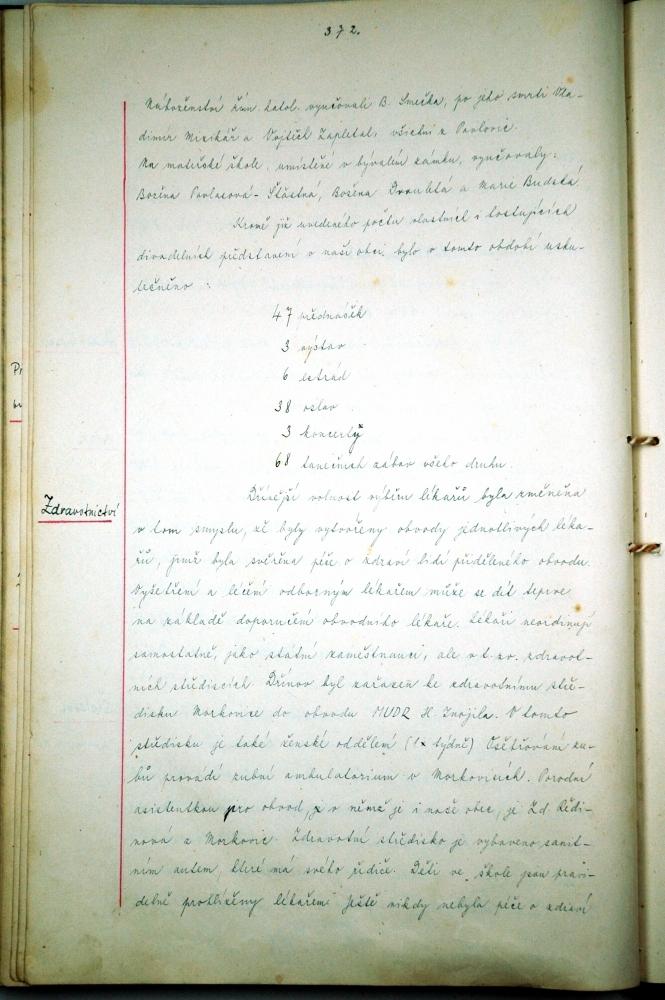 372.
Náboženství řím. katol. vyučovali B. Smečka, po jeho smrti Vla-
dimír Mizikář a Vojtěch Zapletal, všichni z Pavlovic.
Na mateřské škole, umístěné v bývalém zámku, vyučovaly:
Božena Pavlasová-Šťastná, Božena Dvouletá a Marie Budská.
Kromě již uvedeného počtu vlastních i hostujících
divadelních představení v naší obci, bylo v tomto období usku-
tečněno:
47 přednášek
3 výstav
6 estrád
38 oslav
3 koncerty
68 tanečních zábav všeho druhu.
Zdravotnictví
Dřívější volnost výběru lékařů byla změněna
v tom smyslu, že byly vytvořeny obvody jednotlivých léka-
řů, jimž byla svěřena péče o zdraví lidí přiděleného obvodu.
Vyšetření a léčení odborným lékařem může se dít teprve
na základě doporučení obvodního lékaře. Lékaři neordinují
samostatně, jako státní zaměstnanci, ale v t. zv. zdravot-
ních střediscích. Dřínov byl zařazen ke zdravotnímu stře-
disku Morkovice do obvodu MUDR H. Znojila. V tomto
středisku je také ženské oddělení (1x týdně) Ošetřování zu-
bů provádí zubní ambulatorium v Morkovicích. Porodní
asistentkou pro obvod, v němž je i naše obec, je Zd. Ředi-
nová z Morkovic. Zdravotní středisko je vybaveno sanit-
ním autem, které má svého řidiče. Děti ve škole jsou pravi-
delně prohlíženy lékařem. Ještě nikdy nebyla péče o zdraví